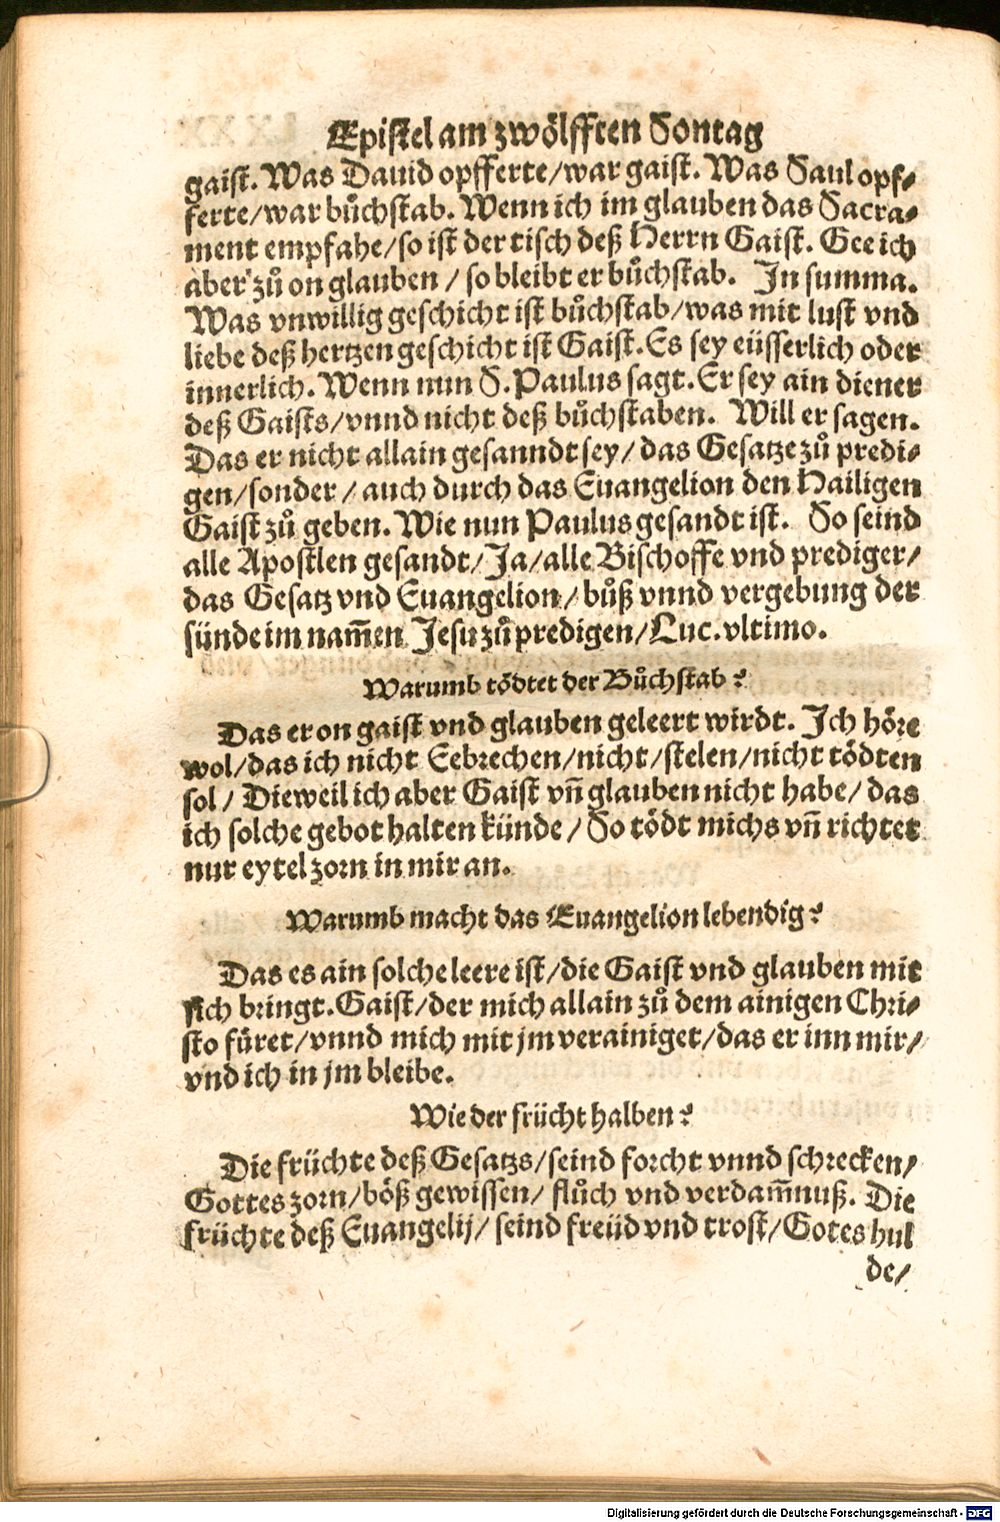 Epistel am zwölfften Sontag
gaist. Was Dauid opfferte/war gaist. Was Saul opf-
ferte/war bůchstab. Wenn ich im glauben das Sacra-
ment empfahe/so ist der tisch deß Herrn Gaist. Gee ich
aber zů on glauben / so bleibt er bůchstab. In summa.
Was vnwillig geschicht ist bůchstab/was mit lust vnd
liebe deß hertzen geschicht ist Gaist. Es sey eüsserlich oder
innerlich. Wenn nun S. Paulus sagt. Er sey ain diener
deß Gaists/vnnd nicht deß bůchstaben. Will er sagen.
Das er nicht allain gesanndt sey/ das Gesatze zů predi-
gen/sonder / auch durch das Euangelion den Hailigen
Gaist zů geben. Wie nun Paulus gesandt ist. So seind
alle Apostlen gesandt/ Ja/alle Bischoffe vnd prediger/
das Gesatz vnd Euangelion/ bůß vnnd vergebung der
sünde im nam̃en Jesu zů predigen/Luc. vltimo.
Warumb tödtet der Bůchstab?
Das er on gaist vnd glauben geleert wirdt. Ich höre
wol/das ich nicht Eebrechen/nicht/stelen/nicht tödten
sol / Dieweil ich aber Gaist vñ glauben nicht habe/ das
ich solche gebot halten künde / So tödt michs vñ richtet
nur eytel zorn in mir an.
Warumb macht das Euangelion lebendig?
Das es ain solche leere ist/die Gaist vnd glauben mit
sich bringt. Gaist/der mich allain zů dem ainigen Chri-
sto füret/vnnd mich mit jm verainiget/das er inn mir/
vnd ich in jm bleibe.
Wie der frücht halben?
Die früchte deß Gesatzs/seind forcht vnnd schrecken/
Gottes zorn/böß gewissen/ flůch vnd verdam̃nuß. Die
früchte deß Euangelij/ seind freüd vnd trost/Gotes hul
de/
Digitalisierung gefördert durch die Deutsche Forschungsgemeinschaft - DFG